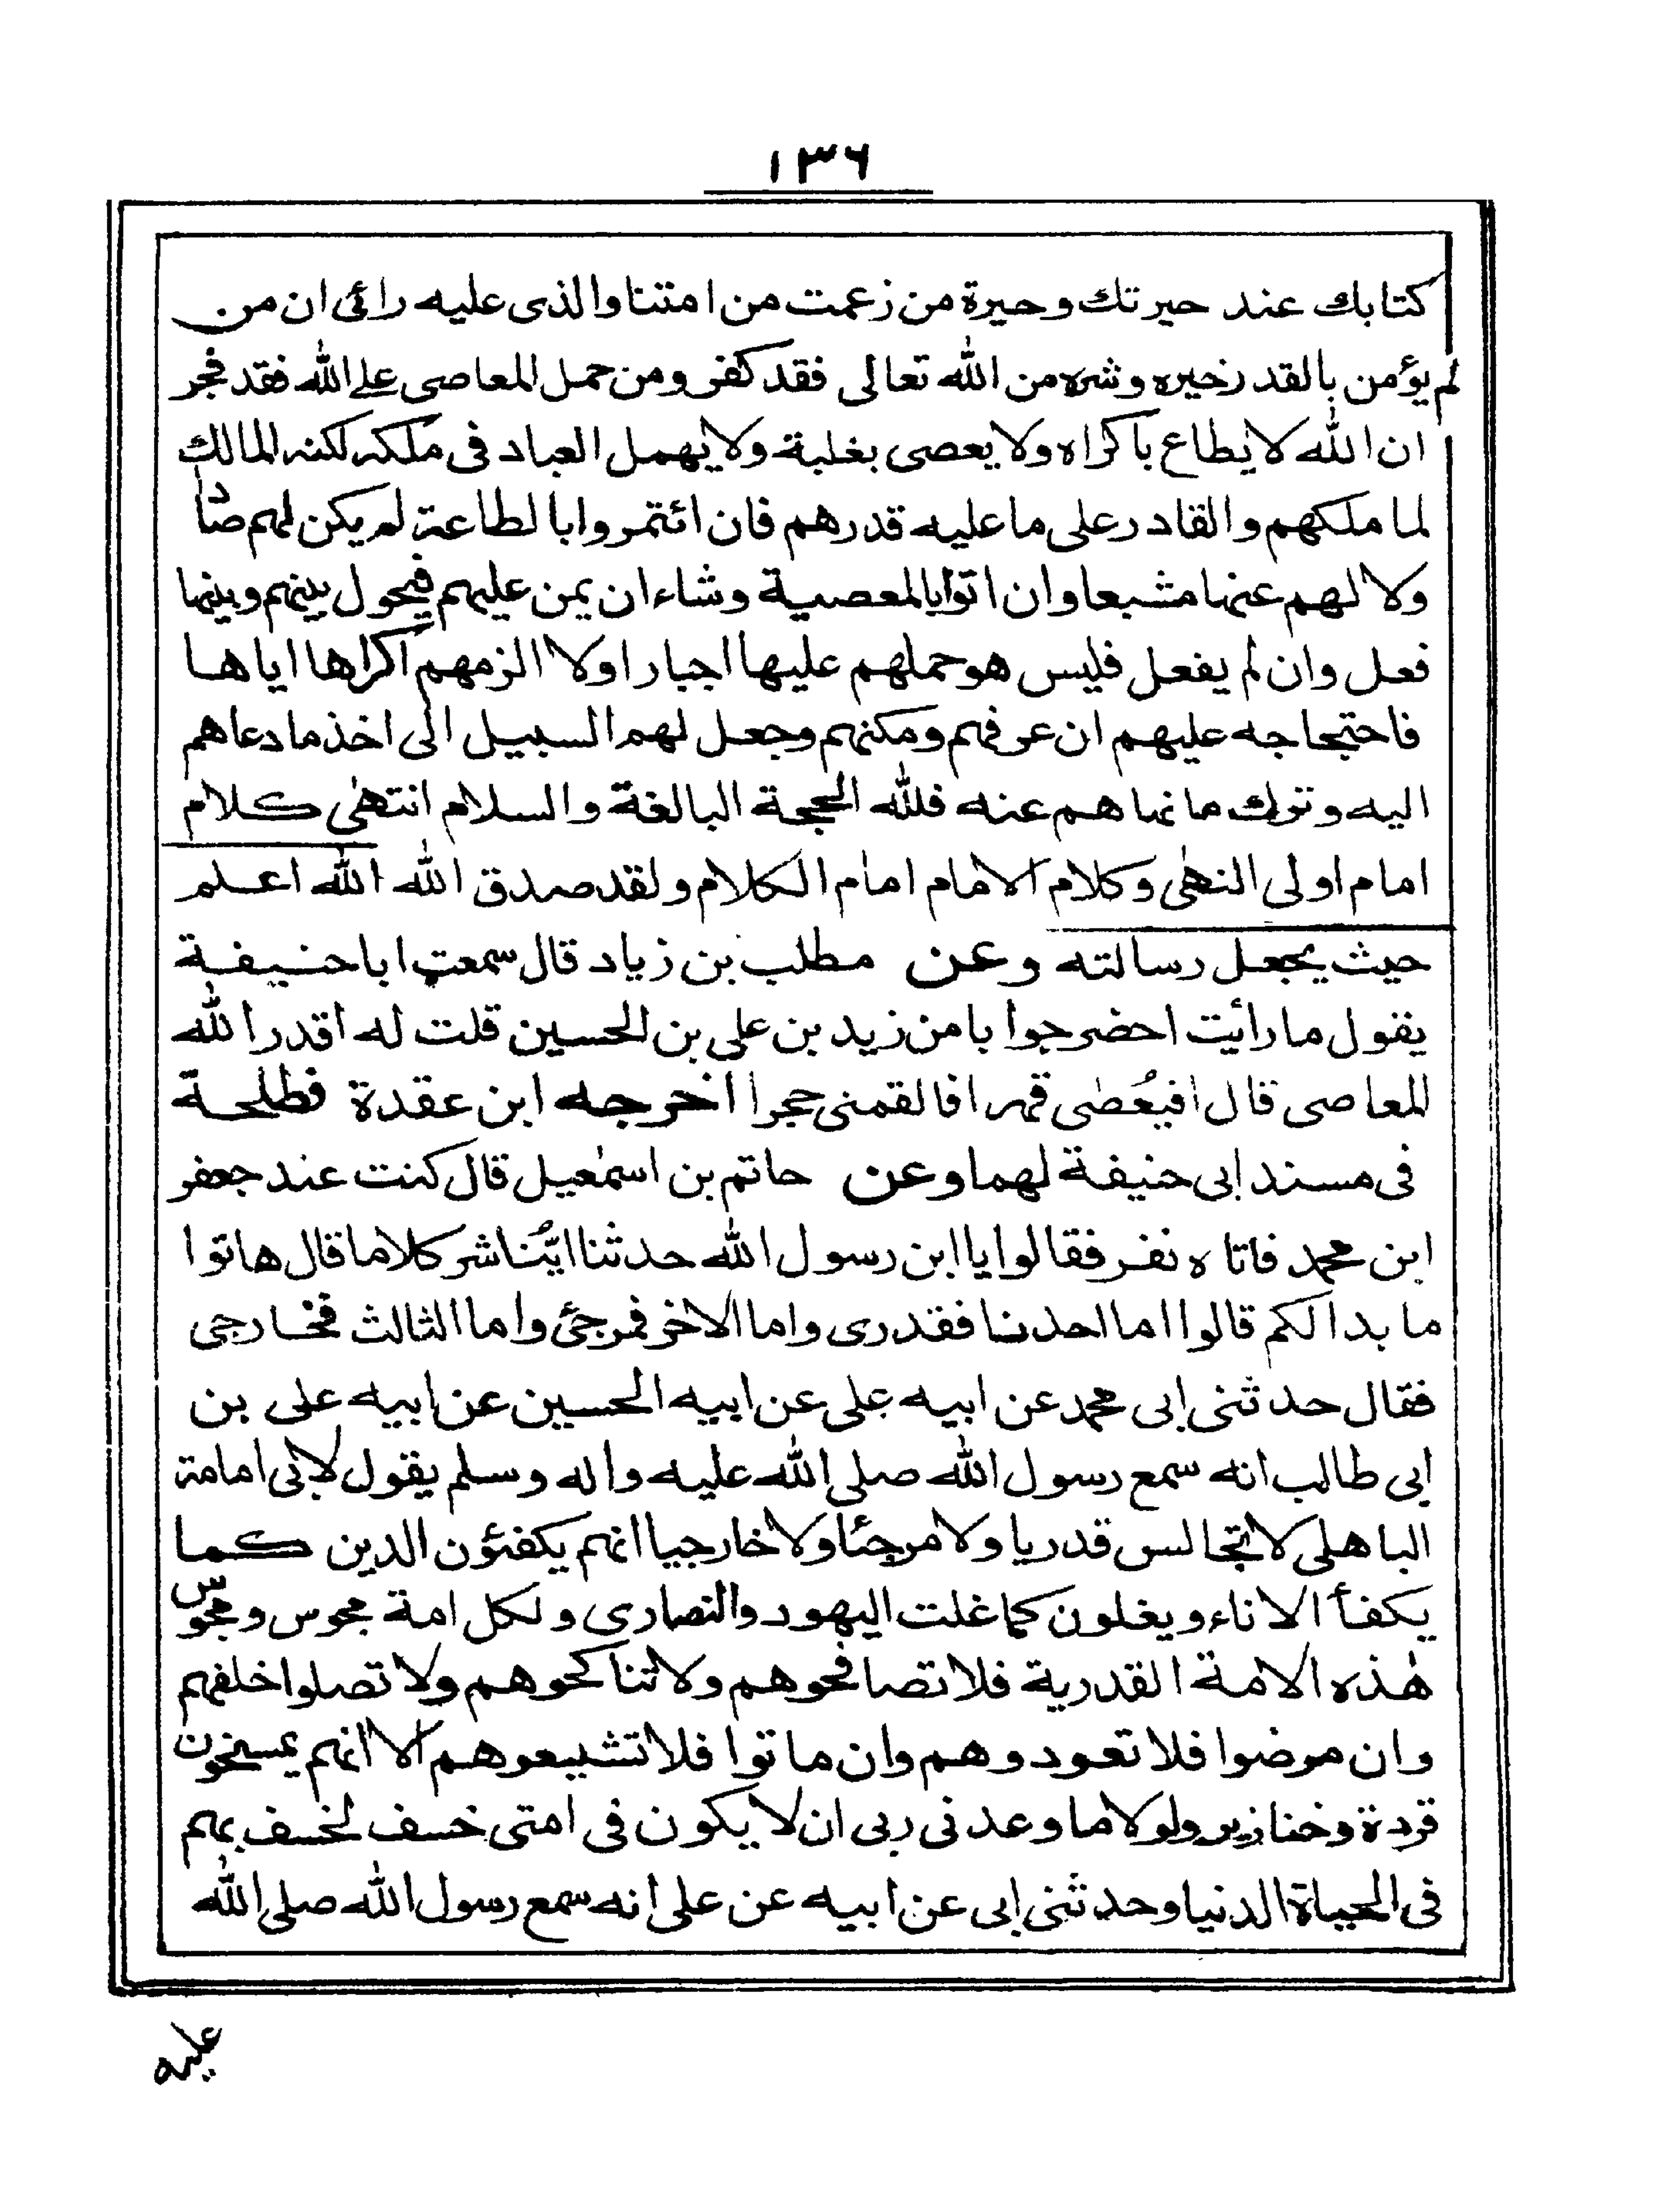 ١٣٦
كتابك عند حيرتك وحيرة من زعمت من امتنا والذى عليه رائى ان من
لم يؤمن بالقدر خيره وشره من الله تعالى فقد كفر ومن حمل المعاصى على الله فقد فجر
ان الله لا يطاع باكراه ولا يعصى بغلبة ولا يهمل العباد فى ملكه لكنه المالك
لما ملكهم والقادر على ما عليه قدرهم فان ائتمروا بالطاعة لم يكن لهم صادا
ولا لهم عنها مشبعا وان اتوا بالمعصية وشاء ان يمن عليهم فيحول بينهم وبينها
فعل وان لم يفعل فليس هو حملهم عليها اجبارا ولا الزمهم اكراها اياها
فاحتجاجه عليهم ان عرفهم ومكنهم وجعل لهم السبيل الى اخذ ما دعاهم
اليه وترك ما نهاهم عنه فلله الحجة البالغة والسلام انتهى كلام
امام اولى النهى وكلام الامام امام الكلام ولقد صدق الله الله اعلم
حيث يجعل رسالته وعن مطلب بن زياد قال سمعت ابا حنيفة
يقول ما رائيت احضر جوابا من زيد بن على بن الحسين قلت له اقدر الله
المعاصى قال افيُعصٰى قهرا فالقمنى حجرا اخرجه ابن عقدة فطلحة
فى مسند ابى حنيفة لهما وعن حاتم بن اسمٰعيل قال كنت عند جعفر
ابن محمد فاتاه نفر فقالوا يا ابن رسول الله حدثنا ايُّنا شر كلاما قال هاتوا
ما بدا لكم قالوا اما احدنا فقدرى واما الاخر فمرجئ واما الثالث فخارجى
فقال حدثنى ابى محمد عن ابيه على عن ابيه الحسين عن ابيه على بن
ابى طالب انه سمع رسول الله صلى الله عليه واله وسلم يقول لابى امامة
الباهلى لا تجالس قدريا ولا مرجئا ولا خارجيا انهم يكفئون الدين كما
يكفأ الاناء ويغلون كما غلت اليهود والنصارى ولكل امة مجوس ومجوس
هٰذه الامة القدرية فلا تصافحوهم ولا تناكحوهم ولا تصلوا خلفهم
وان مرضوا فلا تعودوهم وان ماتوا فلا تشيعوهم الا انهم يمسخون
قردة وخنازير ولولا ما وعدنى ربى ان لا يكون فى امتى خسف لخسف بهم
فى الحياة الدنيا وحدثنى ابى عن ابيه عن على انه سمع رسول الله صلى الله
عليه